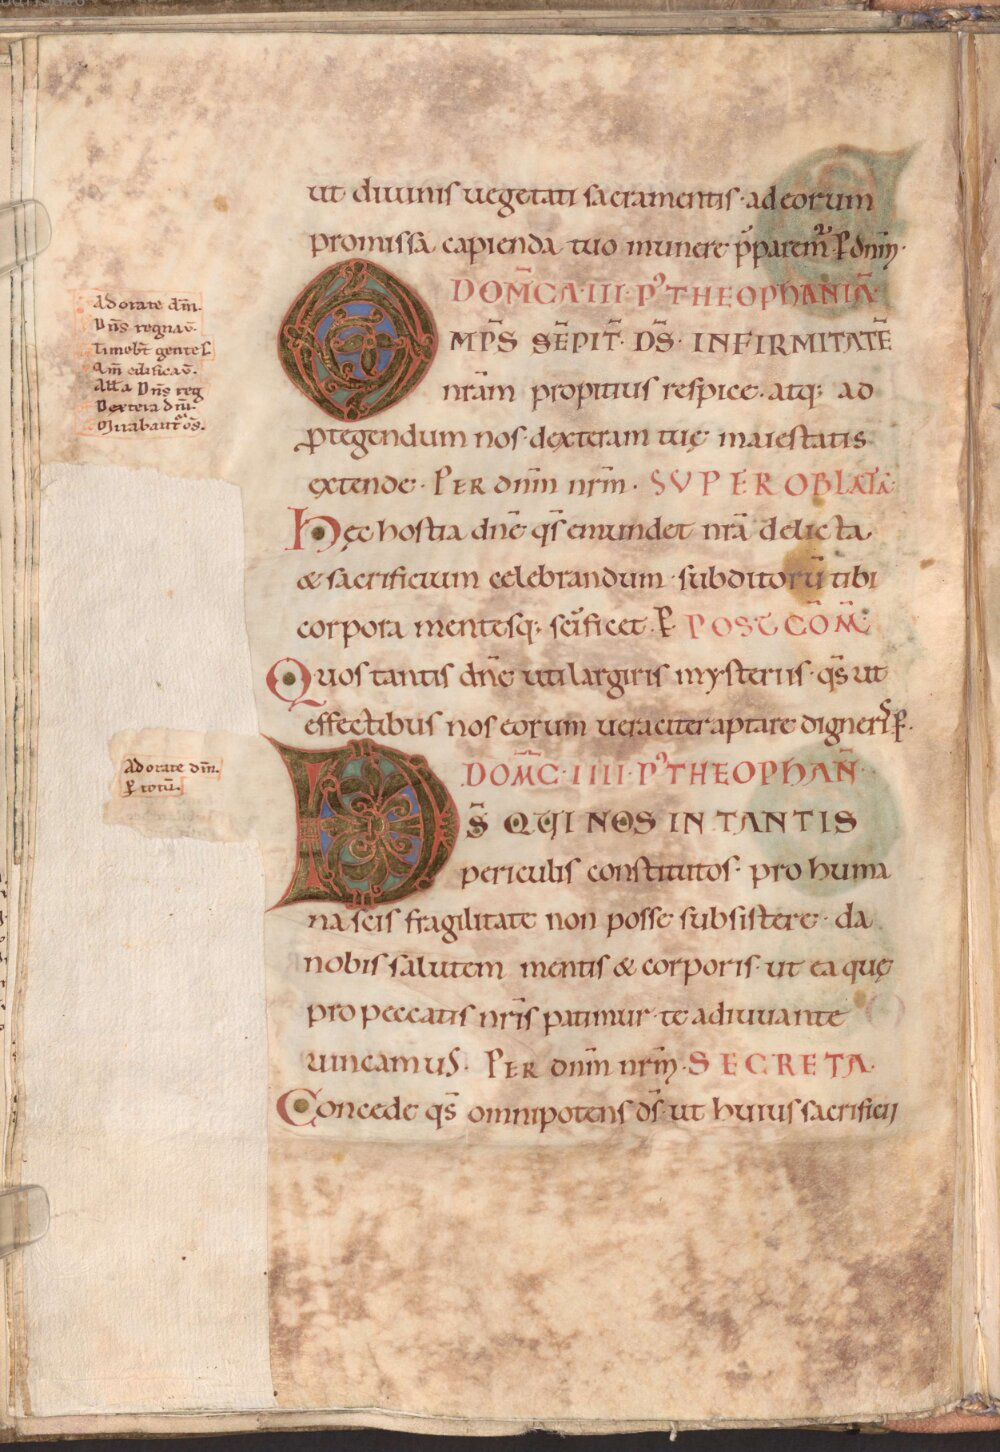 ut diuinis uegetati sacramentis · ad eorum
promissa capienda tuo munere p̄parem᷑ ꝑ dn̄m̄·
DOM̄CA·III·P᾽ THEOPHANIA᷒·
OMP̄S SĒPIT̄· DS̄· INFIRMITATĒ
nr̄am propitius respice · atq; ad
ꝓtegendum nos · dexteram tuę maiestatis
extende · PER dn̄m nr̄m · SUPER OBLATĀ
Hęc hostia dn̄e qs̄ emundet nr̄a delicta
& sacrificium celebrandum · subditorū tibi
corpora mentesq; sc̄ificet · ꝑ POST COM̄
Quos tantis dn̄e uti largiris mysteriis · qs̄ ut
effectibus nos eorum ueraciter aptare digneris ꝑ·
DOM̄C·IIII·P᾽ THEOPHAN̄·
DS̄ QUI NOS IN TANTIS
periculis constitutos · pro huma
na scis fragilitate non posse subsistere · da
nobis salutem mentis & corporis · ut ea quę
pro peccatis nr̄is patimur · te adiuuante
uincamus · PER dn̄m nr̄m · SECRETA·
Concede qs̄ omnipotens ds̄ · ut huius sacrificij
Adorate dm̄.
Dn̄s regnaū.
Timebt̄ gentes.
Qm̄ edificaū.
Alla Dn̄s reg
Dextera dni.
Mirabant᷑ os̄.
Adorate dm̄.
ꝑ totū.